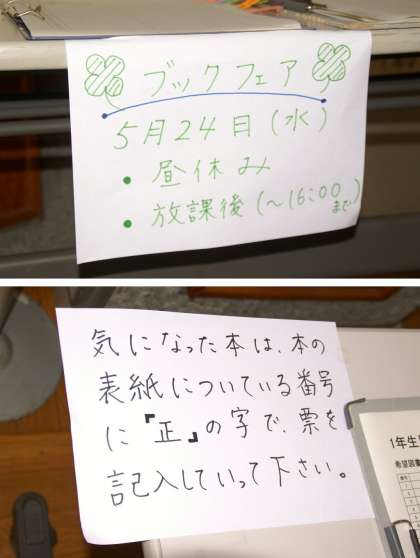 ブックフェア
5月24日(水)
• 昼休み
• 放課後(〜16:00まで)
気になった本は、本の
表紙についている番号
に「正」の字で、票を
記入していって下さい。
1年生
希望図書
番号
1
2